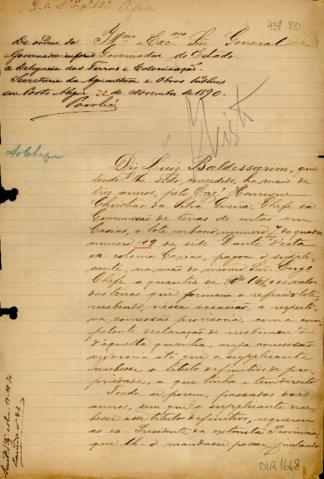 Illmo e Exmo Snr General
Governador do Estado
De ordem do
Governador
a Delegacia das Terras e Colonisação
Secretaria da Agricultura e Obras Publicas
em Porto Alegre 22 de Novembro de 1890.
438 130
Ao Chefe
Diz Luiz Baldessarini, que
tendo lhe sido concedido, ha mais de
tres annos, pelo Engo Henrique
Christino da Silva, Chefe da
Commissão de terras de então em
Caxias, o lote urbano numero 7 da quadra
numero 19 da séde Dante d'esta
ex-colonia Caxias, pagou o suppli-
cante, na mão do mesmo Snr. Engo
Chefe a quantia de
das terras que formam o referido lote,
recebendo, n'essa occasião, a respecti-
va concessão provisoria, com a com-
petente declaração de recebimento
d'aquella quantia, cuja concessão
vigoraria até que o supplicante
recebesse o titulo definitivo de pro-
priedade, a que tinha
Sendo porem, passados
annos, sem que o supplicante rece-
besse esse titulo definitivo, requereu
ao ex-Presidente da extincta Provincia
que lh'o mandasse passar, juntando
DLR 1668